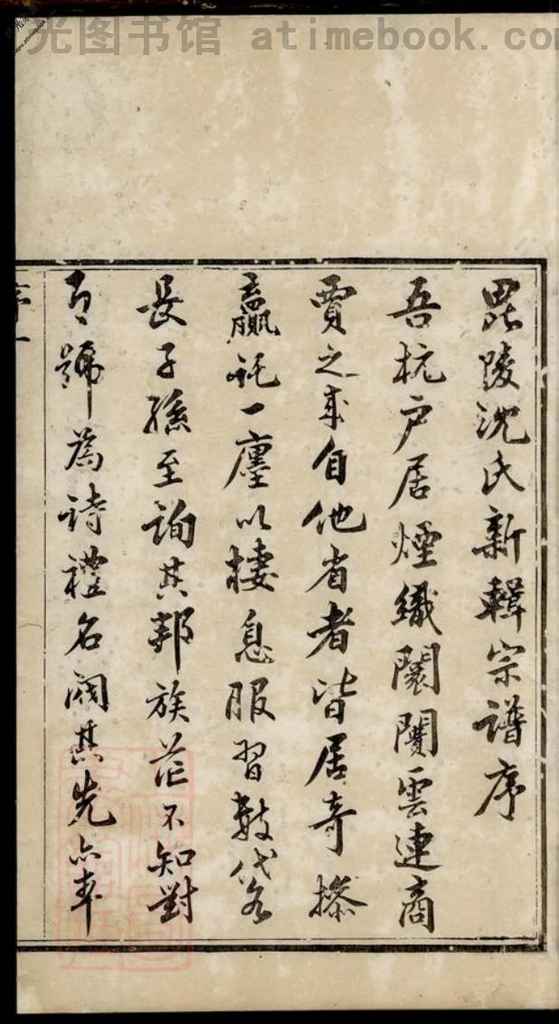 光图书馆 atimebook.com
毘陵沈氏新輯宗譜序
吾杭户居煙織闤闠雲連商
賈之来自他省者皆居奇操
贏託一廛以棲息服習數代
長子孫至詢其邦族茫不知對
即號為詩禮名閥其先亦率
序一